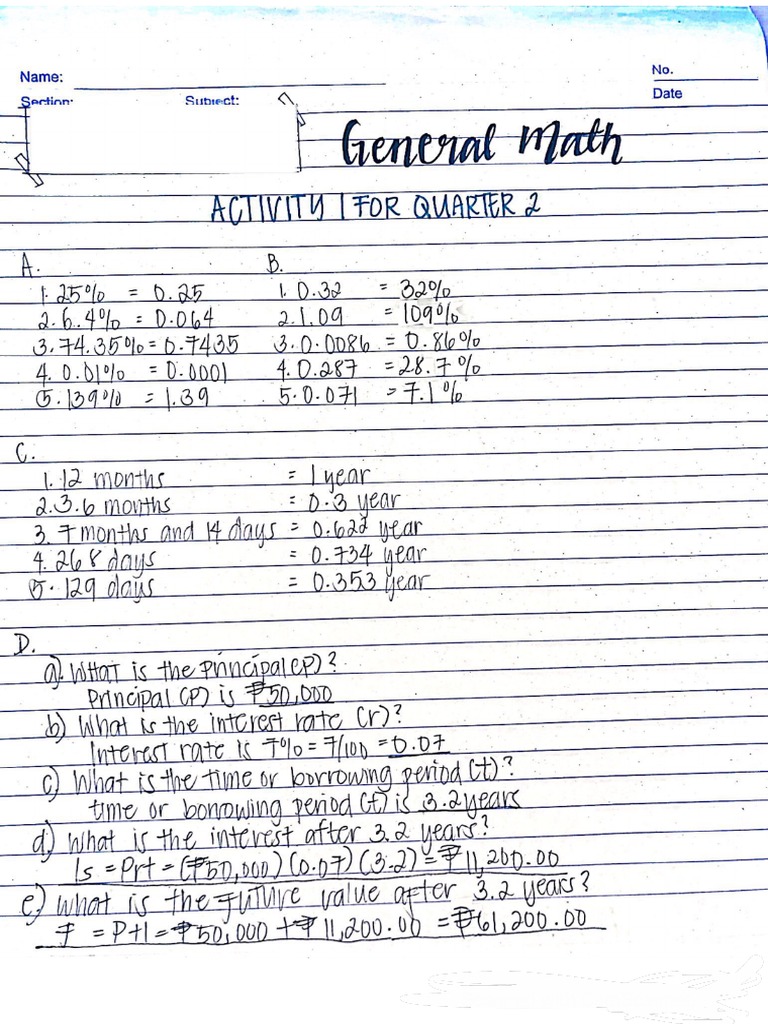 Name:
No.
Section: Subject:
Date
General Math
ACTIVITY 1 FOR QUARTER 2
A.
1. 25% = 0.25
2. 6.4% = 0.064
3. 74.35% = 0.7435
4. 0.01% = 0.0001
5. 139% = 1.39
B.
1. 0.32 = 32%
2. 1.09 = 109%
3. 0.0086 = 0.86%
4. 0.287 = 28.7%
5. 0.071 = 7.1%
C.
1. 12 months = 1 year
2. 3.6 months = 0.3 year
3. 7 months and 14 days = 0.622 year
4. 268 days = 0.734 year
5. 129 days = 0.353 year
D.
a) What is the principal (P)?
Principal (P) is ₱50,000
b) What is the interest rate (r)?
Interest rate is 7% = 7/100 = 0.07
c) What is the time or borrowing period (t)?
time or borrowing period (t) is 3.2 years
d) What is the interest after 3.2 years?
Is = Prt = (₱50,000)(0.07)(3.2) = ₱11,200.00
e) What is the future value after 3.2 years?
F = P+I = ₱50,000 + ₱11,200.00 = ₱61,200.00